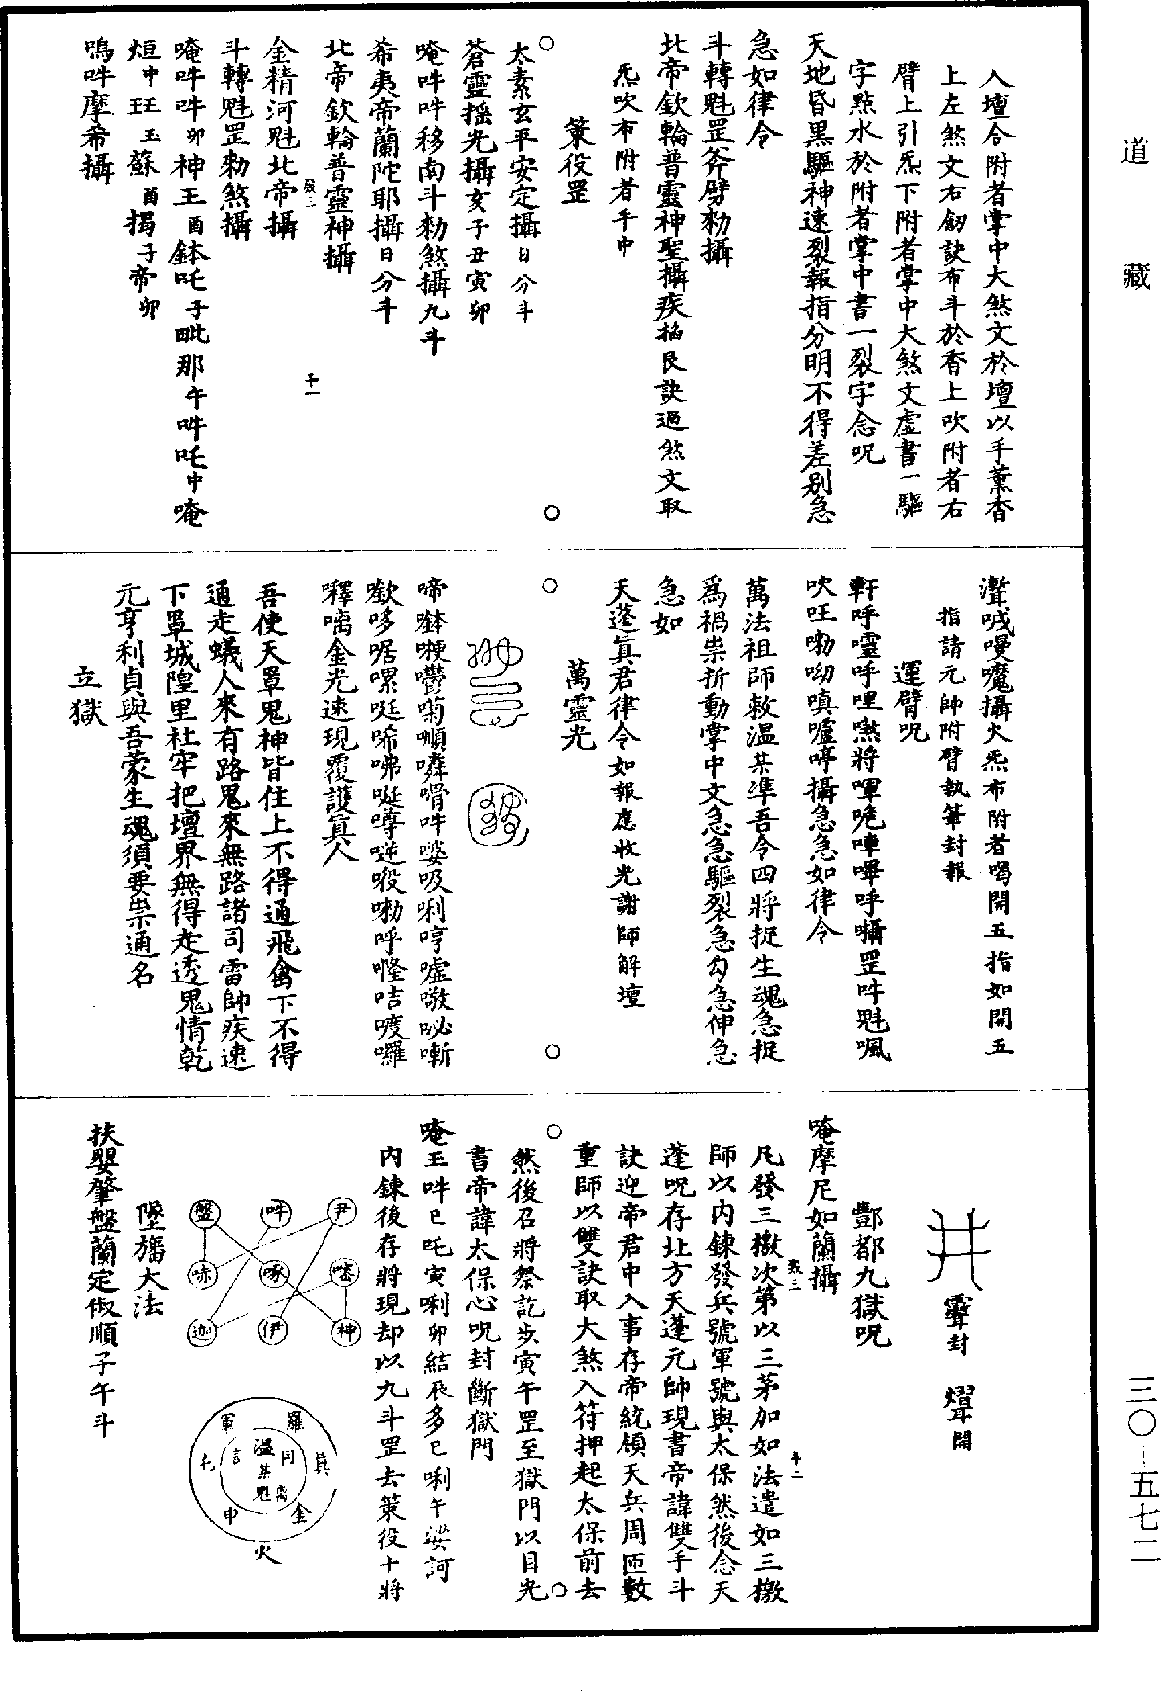 道藏
入壇合附者掌中大煞文於壇以手薰香
上左煞文右劒訣布斗於香上吹附者右
臂上引炁下附者掌中大煞文虛書一驅
字點水於附者掌中書一裂字念呪
天地昏黑驅神速裂報指分明不得差别急
急如律令
斗轉魁罡斧劈勑攝
北帝欽輪普靈神聖攝疾掐艮訣過煞文取
炁吹布附者手中
策役罡
太素玄平安定攝日分斗
蒼靈摇光攝亥子丑寅卯
唵吽吽移南斗勑煞攝九斗
希夷帝蘭陀耶攝日分斗
北帝欽輪普靈神攝
十一
金精河魁北帝攝
斗轉魁罡勑煞攝
唵吽吽卯神王酉鉢吒子毗那午吽吒中唵
烜中玨玉蘇酉揭子帝卯
嗚吽摩希攝
攝火炁布附者喝開五指如開五
指請元帥附臂執筆封報
運臂呪
軒呼靈呼哩㗫將喗唬呼囁罡吽魁颯
吹㕵嘞呦嗔嚧哼攝急急如律令
萬法祖師敕溫某準吾令四將捉生魂急捉
爲禍祟折動掌中文急急驅裂急勾急伸急
急如
天蓬真君律令如報應收光謝師解壇
萬靈光
歡哆噺呼吽吸唎哼嘘
嘞呼咭囉
釋㗫金光速現覆護真人
吾使天罩鬼神皆住上不得通飛禽下不得
通走蟻人來有路鬼來無路諸司雷帥疾速
下罩城隍里社牢把壇界無得走透鬼情乾
元亨利貞與吾蒙生魂須要祟通名
立獄
封
開
酆都九獄呪
唵摩尼如蘭攝
十二
凡發三檄次第以三茅加如法遣如三檄
師以内鍊發兵號軍號與太保然後念天
蓬呪存北方天蓬元帥現書帝諱雙手斗
訣迎帝君中入事存帝統領天兵周匝數
重師以雙訣取大煞入符押起太保前去
然後召將祭訖步寅午罡至獄門以目光
書帝諱太保心呪封斷獄門
唵王吽巳吒寅唎卯結辰多巳唎午婆訶
内鍊後存將現却以九斗罡去策役十將
尹 吽 盤
嚓 啄 㖠
神 伊 迦
羅 真 金 火 申 七 軍
同 言
溫 某 魁
墜旛大法
扶嬰肇盤蘭定俶順子午斗
三〇—五七二